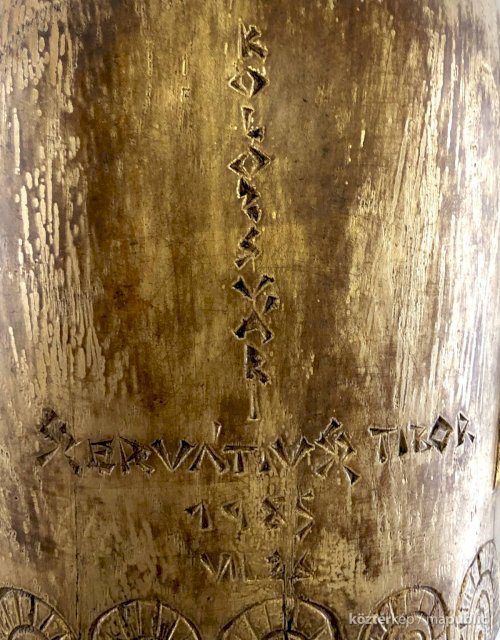 KOLOZSVÁRI
SZERVÁTIUSZ TIBOR
1985
köztérkép / mapublic